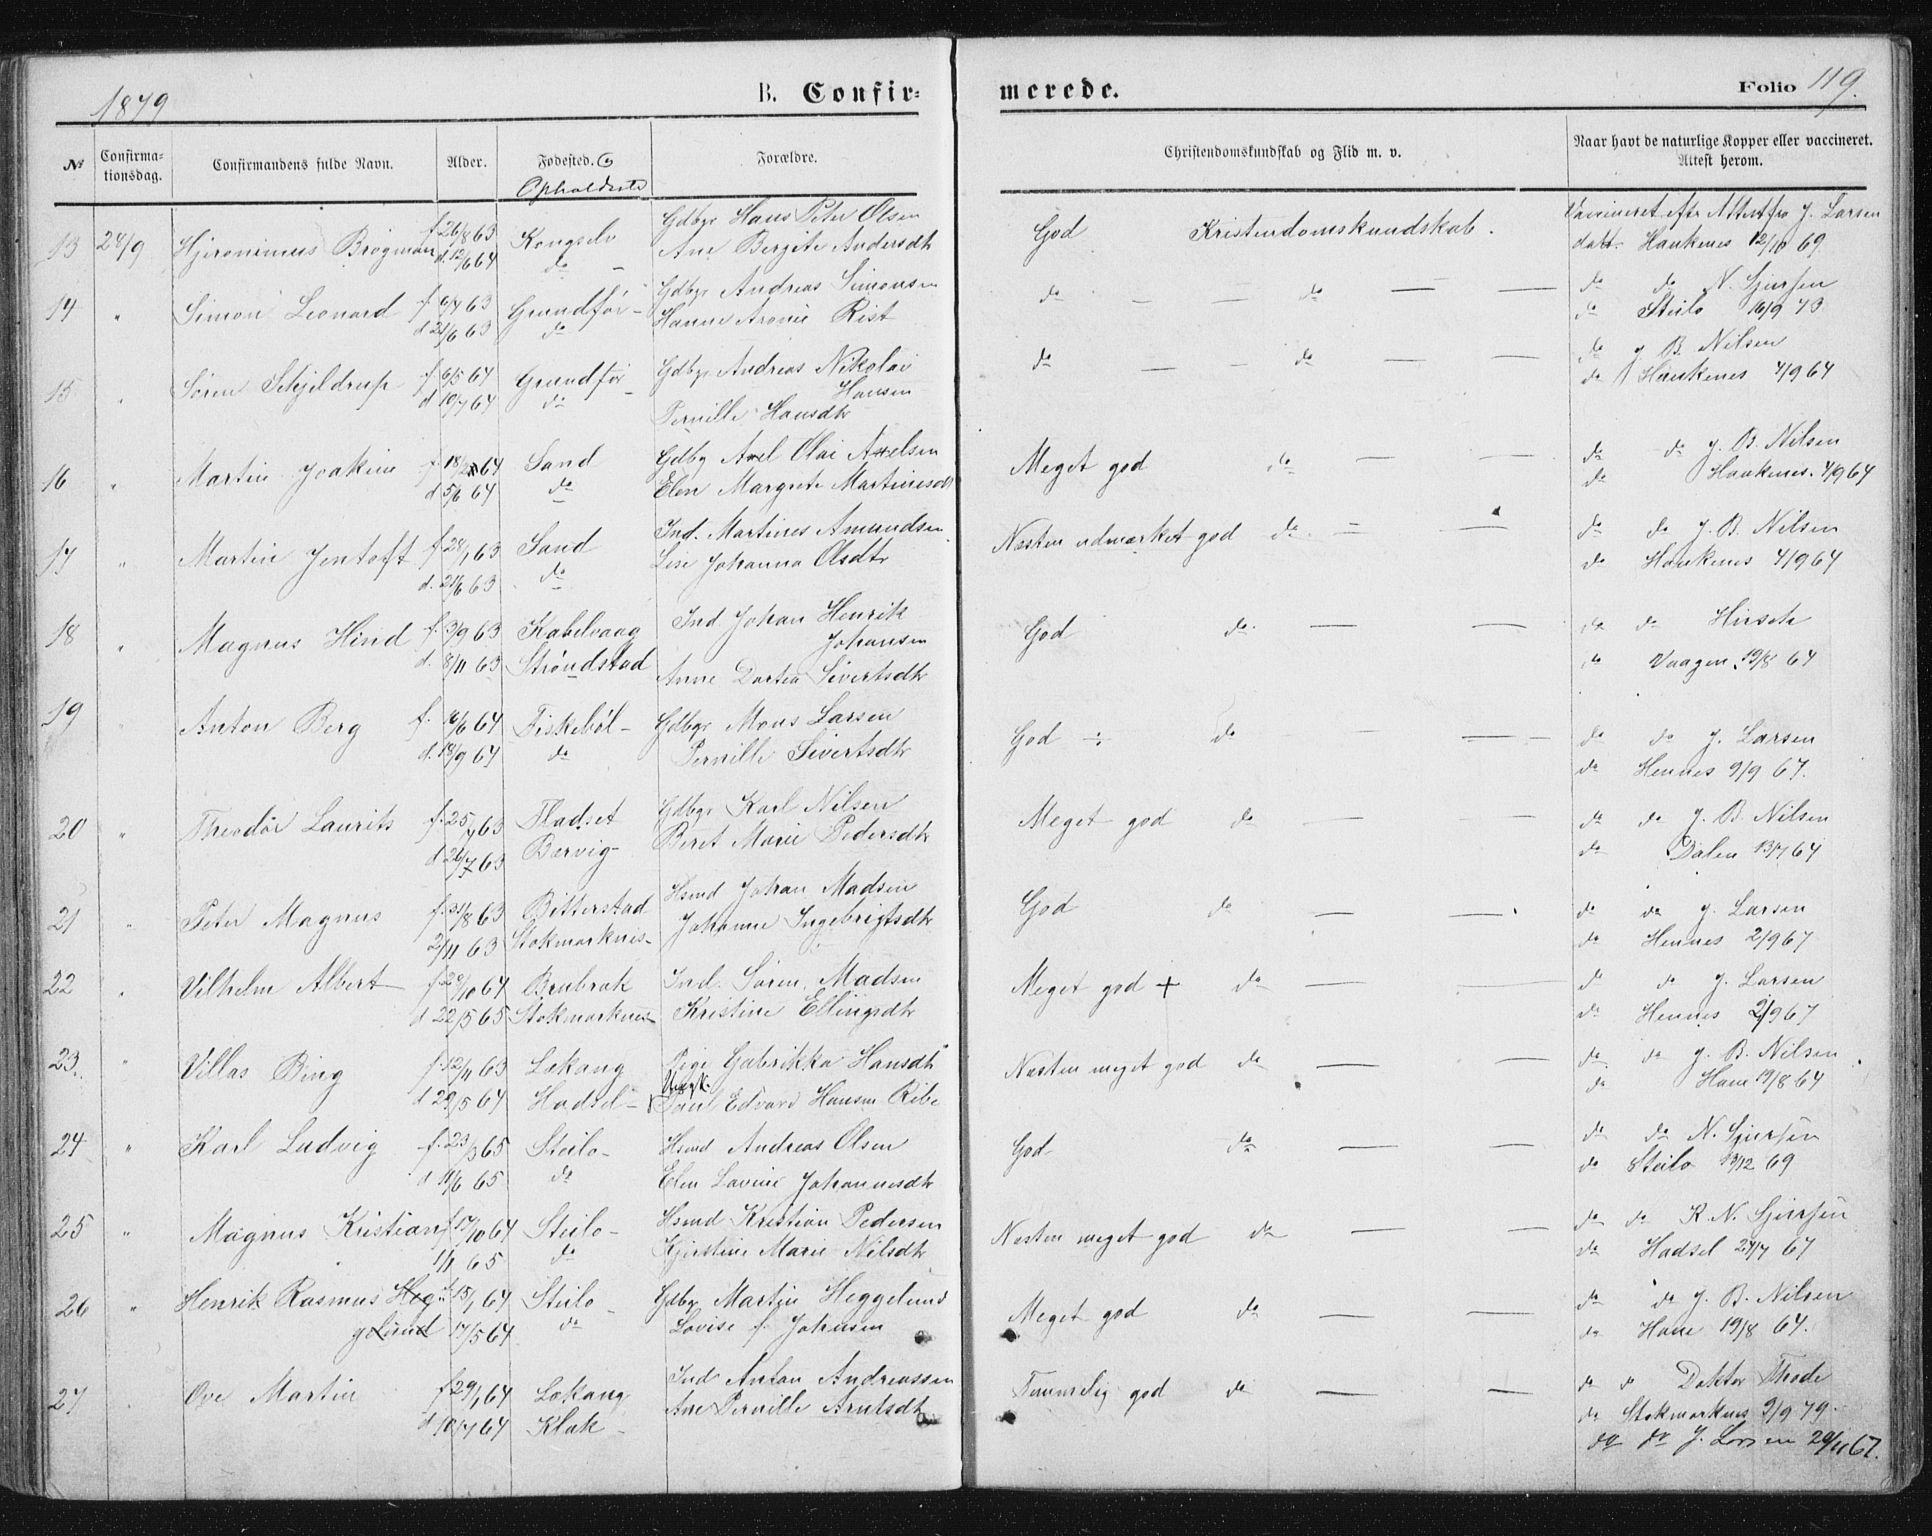 1879
B. Confir=
merede.
Folio 119.
No
Confirma-
tionsdag.
Confirmandens fulde Navn.
Alder.
Fødested. &
Opholdssted
Forældre.
Christendomskundskab og Flid m. v.
Naar havt de naturlige Kopper eller vaccineret.
Attest herom.
13 28/9 Hjeronimus Brøgman f. 26/8 63 Kongselv Gdbgr Hans Peter Olsen God Kristendomskundskab. Vaccineret eftr Attest fra J. Larsen
d. 12/6 64 do - Ane Bergite Andersdtr datt. Haukenes 12/10 69
14 " Simon Leonard f 6/4 63 Grundfør - Gdbgr Andreas Simonsen do — — do — — do do N. Sjursen
d 21/6 63 do Hanne Aronie Rist do Steilo 16/9 73
15 " Søren Schjeldrup f 6/5 64 Grundfør - Gdbgr Andreas Nikolai do — — do — — do J. B. Nilsen
d 10/7 64 do Hansen do Haukenes 4/9 64
Pernille Hansdtr
16 " Martin Joakim f. 18/2 64 Sand Gdbg Axel Olai Axelsen Meget god do — — do do J. B. Nilsen
d 5/6 64 do Elen Margrete Martinusdt do Haukenes. 4/9 64
17 " Martin Jentoft f 28/1 63 Sand Ind. Martines Amundsen Næsten udmærket god do. — — do do J. B. Nilsen
d. 21/6 63 do Lise Johanna Olsdtr do Haukenes 4/9 64
18 " Magnus Hind f. 3/9 63 Kabelvaag Ind Johan Henrik God do. — — do do Hirsch
d. 8/11 63 Strøndstad Johansen do Vaagen 19/8 64
Anne Dortea Sivertsdtr
19 " Anton Berg f. 16/6 64 Fiskebøl - Gdbgr Mons Larsen God ÷ do — — do do J. Larsen
d. 18/9 64 do Pernille Sivertsdtr do Hennes 9/9 67.
20 " Theodor Laurits f. 25/4 63 Fladset Gdbgr Karl Nilsen Meget god do — — do do J. B. Nilsen
d 26/7 63 Børvig - Beret Marie Pedersdtr do Dalen 13/7 64
21 " Peter Magnus f. 31/8 63 Bitterstad Hsmd Johan Madsen God do — — do do J. Larsen
2/11 63 Stokmarknes - Johanne Ingebrigtsdtr do Hennes 2/9 67
22 " Vilhelm Albert f 20/10 64 Brubrok Ind. Søren Madsen Meget god + do — — do do J. Larsen
d 22/5 65 Stokmarknes - Kristine Ellingsdtr do Hennes 2/9 67
23. " Villas Bing f. 12/11 63 Lekang Pige Gabrikka Hansdtr Næsten meget god do — — do do J. B. Nilsen
d 29/5 64 Hadsel - Ungk. Poul Edvard Hansen Ribe do Hane 19/8 64
24 " Karl Ludvig f. 23/3 65 Steilo - Hsmd Andreas Olsen God do — — do do N. Sjursen
d 11/6 65 do Elen Lovine Johannesdtr do Steilo 19/12 69
25 " Magnus Kristian f 17/10 64 Steilo - Hsmd Kristian Pedersen Næsten meget god do — — do do K. N. Sjursen
1/1 65 do Kjerstine Marie Nilsdtr do Hadsel 24/7 67
26 " Henrik Rasmus Heg f 15/1 64 Steilo - Gdbgr Martin Heggelund Meget god do — — do do J. B. Nilsen
gelund 17/5 64 do Lovise f. Johnsen do Hane 19/8 64.
27 Ove Martin f 29/1 64 Lekang Ind Anton Andreassen Temmelig god do — — do do Doktor Thode
d 10/7 64 Klak - Ane Pernille Arntsdtr do Stokmarknes 9/9 79.
do do J. Larsen 29/11 67.